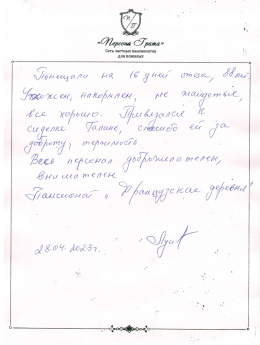 "Персона Гранта"
Сеть частных пансионатов
для пожилых
Помещали на 16 дней отца, 88 лет.
Ухожен, накормлен, не
все хорошо. Привязался к
сиделке Галине, спасибо ей за
доброту, терпимость.
Весь персонал доброжелателен,
внимателен
Пансионат "Французская деревня"
28.04.2023г.